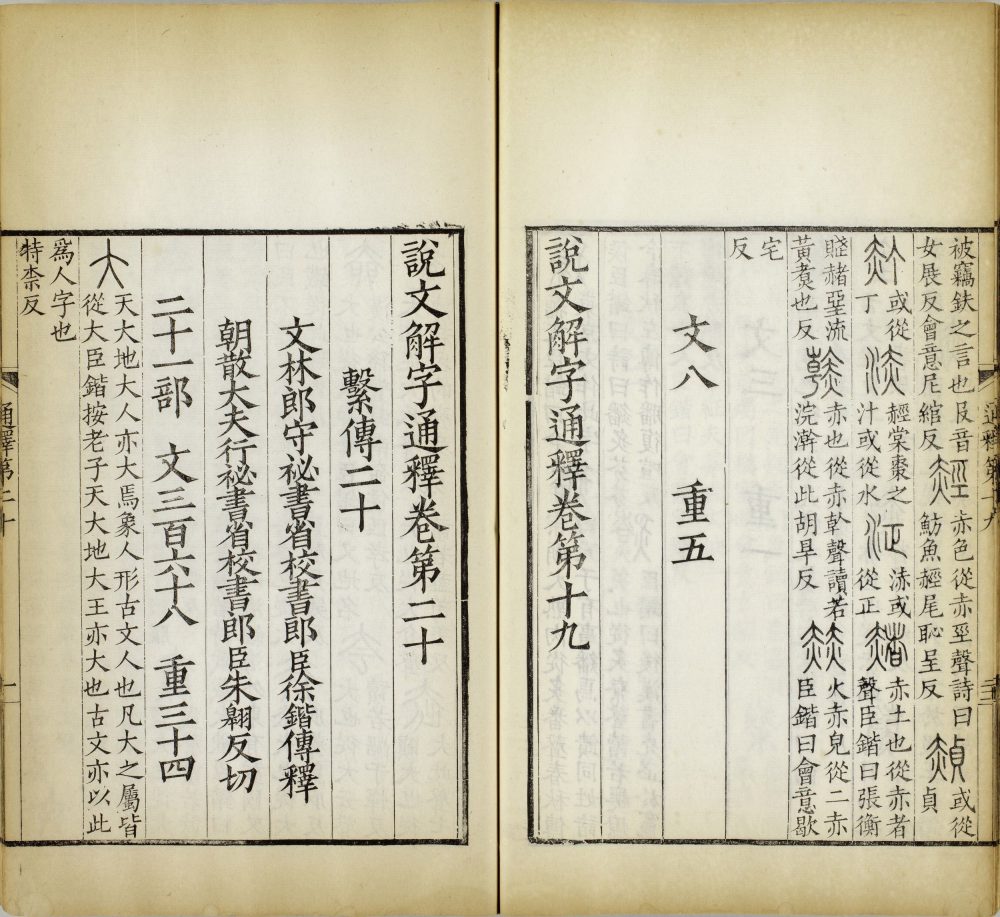 通釋第十九
被竊鈇之言也𠬝音
女展反會意尼綰反
䞓
赤色從赤巠聲詩曰
魴魚䞓尾恥呈反
赬
或從
貞
𧹙
或從
丁
浾
䞓棠棗之
汁或從水
泟
浾或
從正
赭
赤土也從赤者
聲臣鍇曰張衡
賤赭堊流
黃煑也反
𧹳
赤也從赤倝聲讀若
浣澣從此胡旱反
赫
火赤皃從二赤
臣鍇曰會意歇
宅
反
文八　重五
說文解字通釋卷第十九
說文解字通釋卷第二十
繫傳二十
文林郎守祕書省校書郎臣徐鍇傳釋
朝散大夫行祕書省校書郎臣朱翱反切
二十一部　文三百六十八　重三十四
大
天大地大人亦大焉象人形古文人也凡大之屬皆
從大臣鍇按老子天大地大王亦大也古文亦以此
爲人字也
特柰反
通釋第二十
一